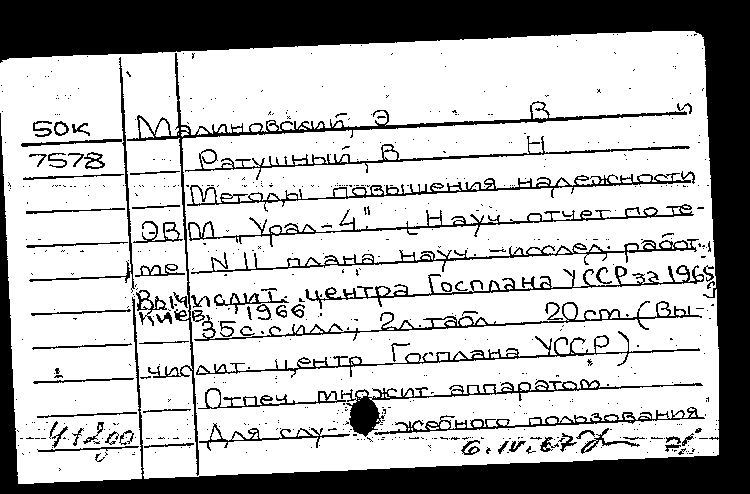 50к Малиновский, Э В и
7578 Ратушный, В Н
Методы повышения надежности
ЭВМ „Урал-4". [Науч. отчет по те-
ме N II плана науч.-исслед. работ
Вычислит. центра Госплана УССР за 1965]
Киев, 1966
35 с. с илл.; 2 л. табл. 20 см. (Вы-
числит. центр Госплана УССР).
Отпеч. множит. аппаратом.
Для слу- жебного пользования
41200 6.IV.67